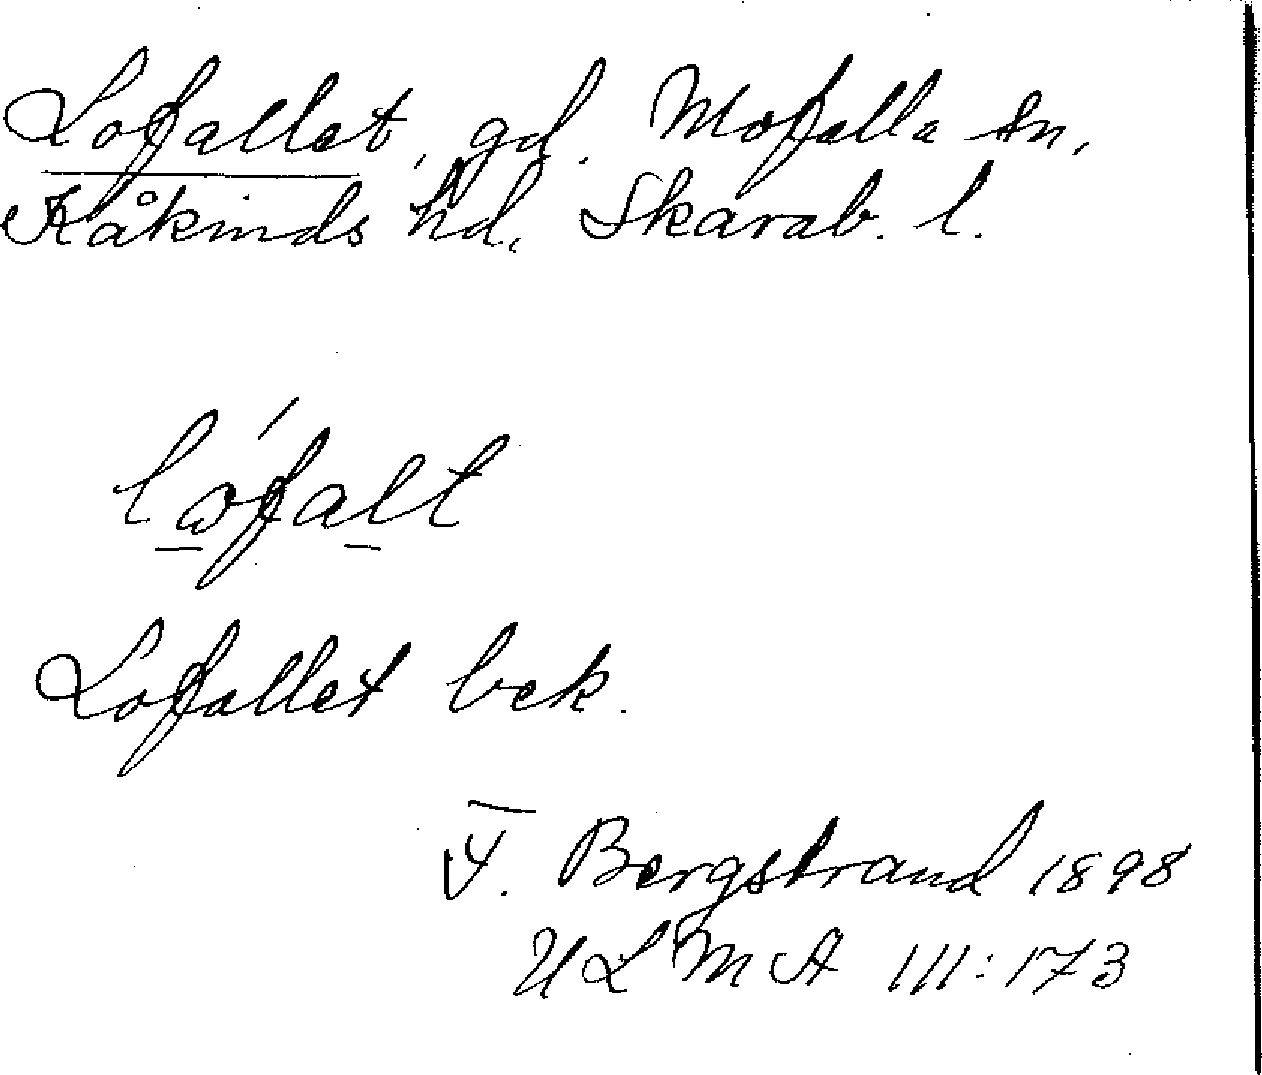 Lofallet, gd. Mofalla sn,
Kåkinds hd, Skarab. l.
lofalt
Lofallet bek.
F. Bergstrand 1898
ULMA 111:173